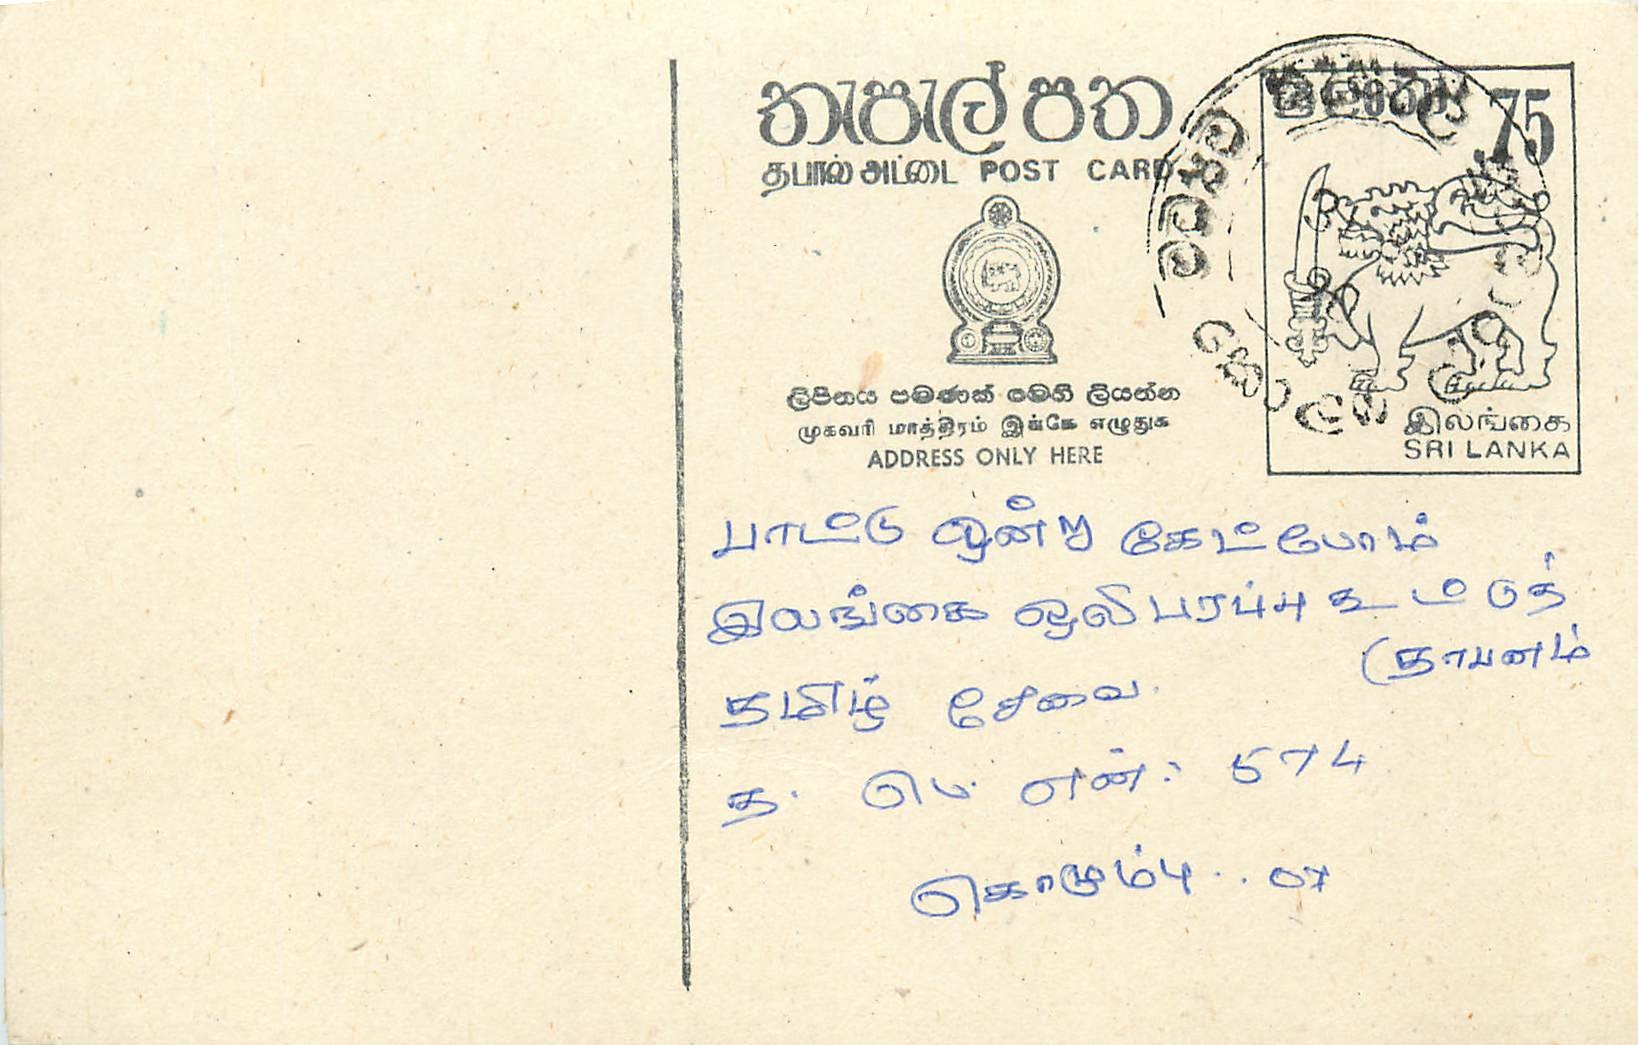 තැපැල් පත
தபால் அட்டை POST CARD
75
ලිපිනය පමණක් මෙහි ලියන්න
முகவரி மாத்திரம் இங்கே எழுதுக
ADDRESS ONLY HERE
இலங்கை
SRI LANKA
பாட்டு ஒன்று கேட்போம்
இலங்கை ஒலிபரப்பு கூட்டுத்
(தாபனம்
தமிழ் சேவை.
த. பெ. என்: 574
கொழும்பு.. 07